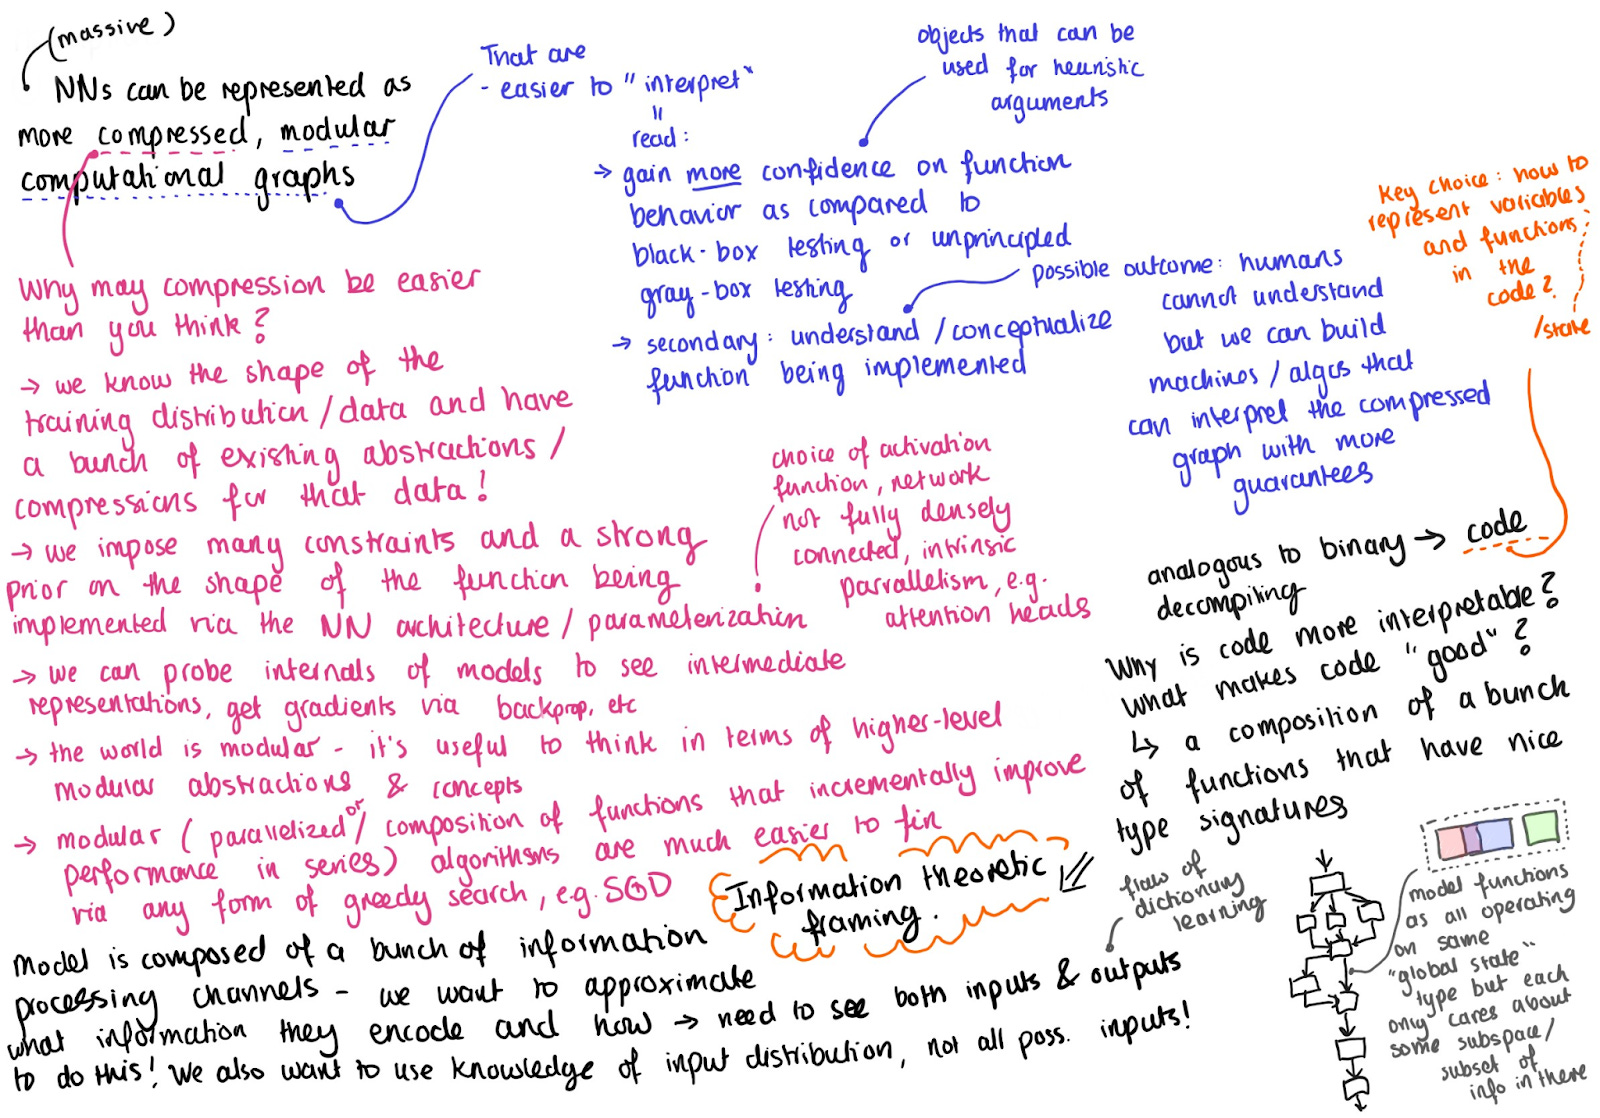 (massive)
NNs can be represented as
more compressed, modular
computational graphs
That are
- easier to "interpret"
=
read:
objects that can be
used for heuristic
arguments
→ gain more confidence on function
behavior as compared to
black-box testing or unprincipled
gray-box testing
→ secondary: understand / conceptualize
function being implemented
possible outcome: humans
cannot understand
but we can build
machines / algos that
can interpret the compressed
graph with more
guarantees
Key choice: how to
represent variables
and functions
in the
code?
/state
Why may compression be easier
than you think?
→ we know the shape of the
training distribution / data and have
a bunch of existing abstractions /
compressions for that data!
→ we impose many constraints and a strong
prior on the shape of the function being
implemented via the NN architecture / parameterization
choice of activation
function, network
not fully densely
connected, intrinsic
parrallelism, e.g.
attention heads
→ we can probe internals of models to see intermediate
representations, get gradients via backprop, etc
→ the world is modular - it's useful to think in terms of higher-level
modular abstractions & concepts
→ modular (parallelized or / composition of functions that incrementally improve
performance in series) algorithsms are much easier to fin
via any form of greedy search, e.g. SGD
analogous to binary → code
decompiling
Why is code more interpretable?
What makes code "good"?
↳ a composition of a bunch
of functions that have nice
type signatures
Information theoretic
framing.
Model is composed of a bunch of information
processing channels - we want to approximate
what information they encode and how → need to see both inputs & outputs
to do this! We also want to use knowledge of input distribution, not all poss. inputs!
flaw of
dictionary
learning
model functions
as all operating
on same
"global state"
type but each
only cares about
some subspace/
subset of
info in there